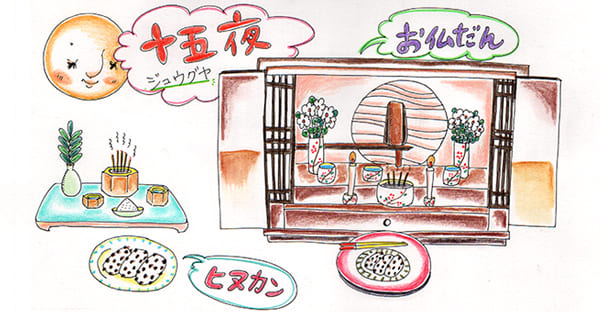 十五夜
ジュウグヤ
お仏だん
ヒヌカン